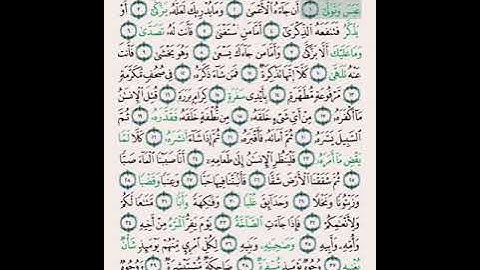 عَبَسَ وَتَوَلَّىٰٓ ١ أَن جَآءَهُ ٱلْأَعْمَىٰ ٢ وَمَا يُدْرِيكَ لَعَلَّهُۥ يَزَّكَّىٰٓ ٣ أَوْ
يَذَّكَّرُ فَتَنفَعَهُ ٱلذِّكْرَىٰٓ ٤ أَمَّا مَنِ ٱسْتَغْنَىٰ ٥ فَأَنتَ لَهُۥ تَصَدَّىٰ ٦
وَمَا عَلَيْكَ أَلَّا يَزَّكَّىٰ ٧ وَأَمَّا مَن جَآءَكَ يَسْعَىٰ ٨ وَهُوَ يَخْشَىٰ ٩ فَأَنتَ
عَنْهُ تَلَهَّىٰ ١٠ كَلَّآ إِنَّهَا تَذْكِرَةٌ ١١ فَمَن شَآءَ ذَكَرَهُۥ ١٢ فِي صُحُفٍ مُّكَرَّمَةٍ
١٣ مَّرْفُوعَةٍ مُّطَهَّرَةٍۭ ١٤ بِأَيْدِي سَفَرَةٍ ١٥ كِرَامٍۭ بَرَرَةٍ ١٦ قُتِلَ ٱلْإِنسَٰنُ
مَآ أَكْفَرَهُۥ ١٧ مِنْ أَيِّ شَيْءٍ خَلَقَهُۥ ١٨ مِن نُّطْفَةٍ خَلَقَهُۥ فَقَدَّرَهُۥ ١٩ ثُمَّ
ٱلسَّبِيلَ يَسَّرَهُۥ ٢٠ ثُمَّ أَمَاتَهُۥ فَأَقْبَرَهُۥ ٢١ ثُمَّ إِذَا شَآءَ أَنشَرَهُۥ ٢٢ كَلَّا لَمَّا
يَقْضِ مَآ أَمَرَهُۥ ٢٣ فَلْيَنظُرِ ٱلْإِنسَٰنُ إِلَىٰ طَعَامِهِۦٓ ٢٤ أَنَّا صَبَبْنَا ٱلْمَآءَ صَبًّا
٢٥ ثُمَّ شَقَقْنَا ٱلْأَرْضَ شَقًّا ٢٦ فَأَنۢبَتْنَا فِيهَا حَبًّا ٢٧ وَعِنَبًا وَقَضْبًا ٢٨
وَزَيْتُونًا وَنَخْلًا ٢٩ وَحَدَآئِقَ غُلْبًا ٣٠ وَفَٰكِهَةً وَأَبًّا ٣١ مَّتَٰعًا لَّكُمْ
وَلِأَنْعَٰمِكُمْ ٣٢ فَإِذَا جَآءَتِ ٱلصَّآخَّةُ ٣٣ يَوْمَ يَفِرُّ ٱلْمَرْءُ مِنْ أَخِيهِ ٣٤
وَأُمِّهِۦ وَأَبِيهِ ٣٥ وَصَٰحِبَتِهِۦ وَبَنِيهِ ٣٦ لِكُلِّ ٱمْرِئٍ مِّنْهُمْ يَوْمَئِذٍ شَأْنٌ
يُغْنِيهِ ٣٧ وُجُوهٌ يَوْمَئِذٍ مُّسْفِرَةٌ ٣٨ ضَاحِكَةٌ مُّسْتَبْشِرَةٌ ٣٩ وَوُجُوهٌ